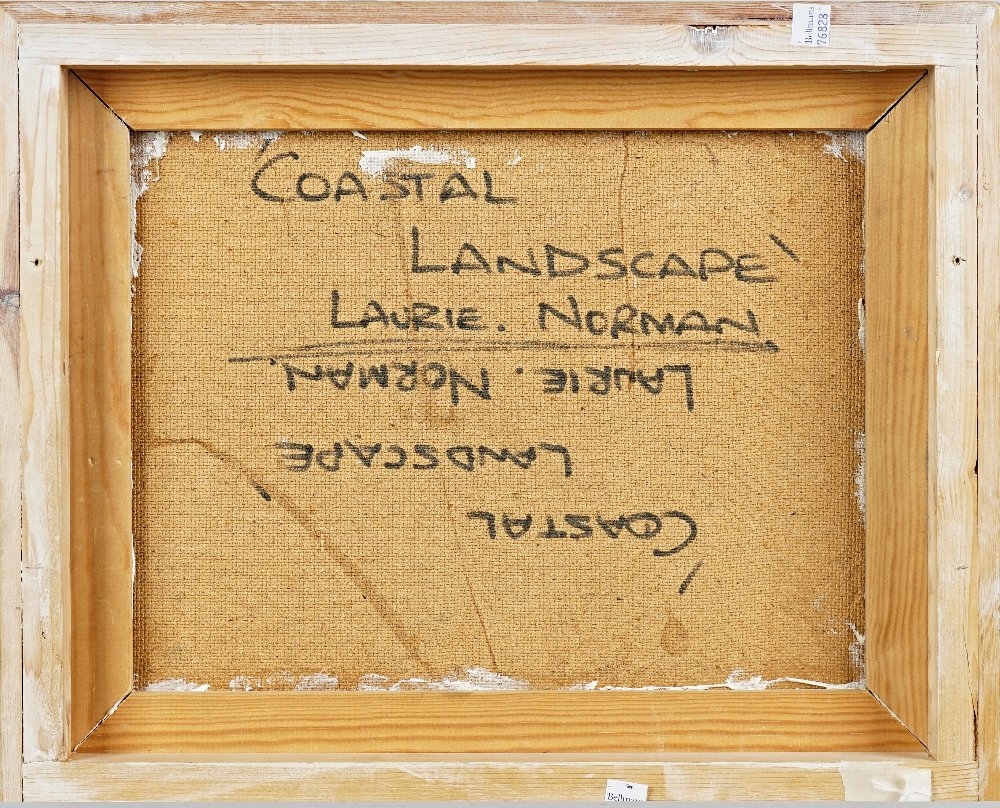 Bellmans
76823
'COASTAL
LANDSCAPE'
LAURIE. NORMAN
'COASTAL
LANDSCAPE'
LAURIE. NORMAN.
Bellmans